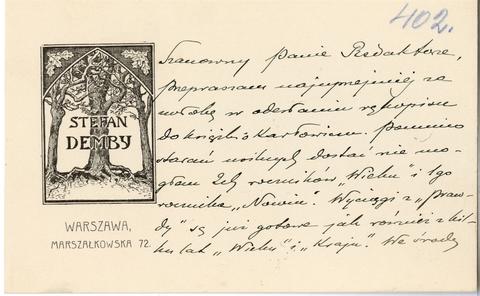 402.
Szanowny Panie Redaktorze,
przepraszam najuprzejmiej za
zwłokę w odesłaniu rękopisu
do książki o Karłowiczu. Pomimo
starań usilnych dostać nie mo-
głem roczników „Wieku” i 1go
rocznika „Nowin”. Wyciągi z „Praw-
dy” są już gotowe jak również z kil-
ku lat „Wieku” i „Kraju”. We środę
STEFAN
DEMBY
WARSZAWA,
MARSZAŁKOWSKA 72.